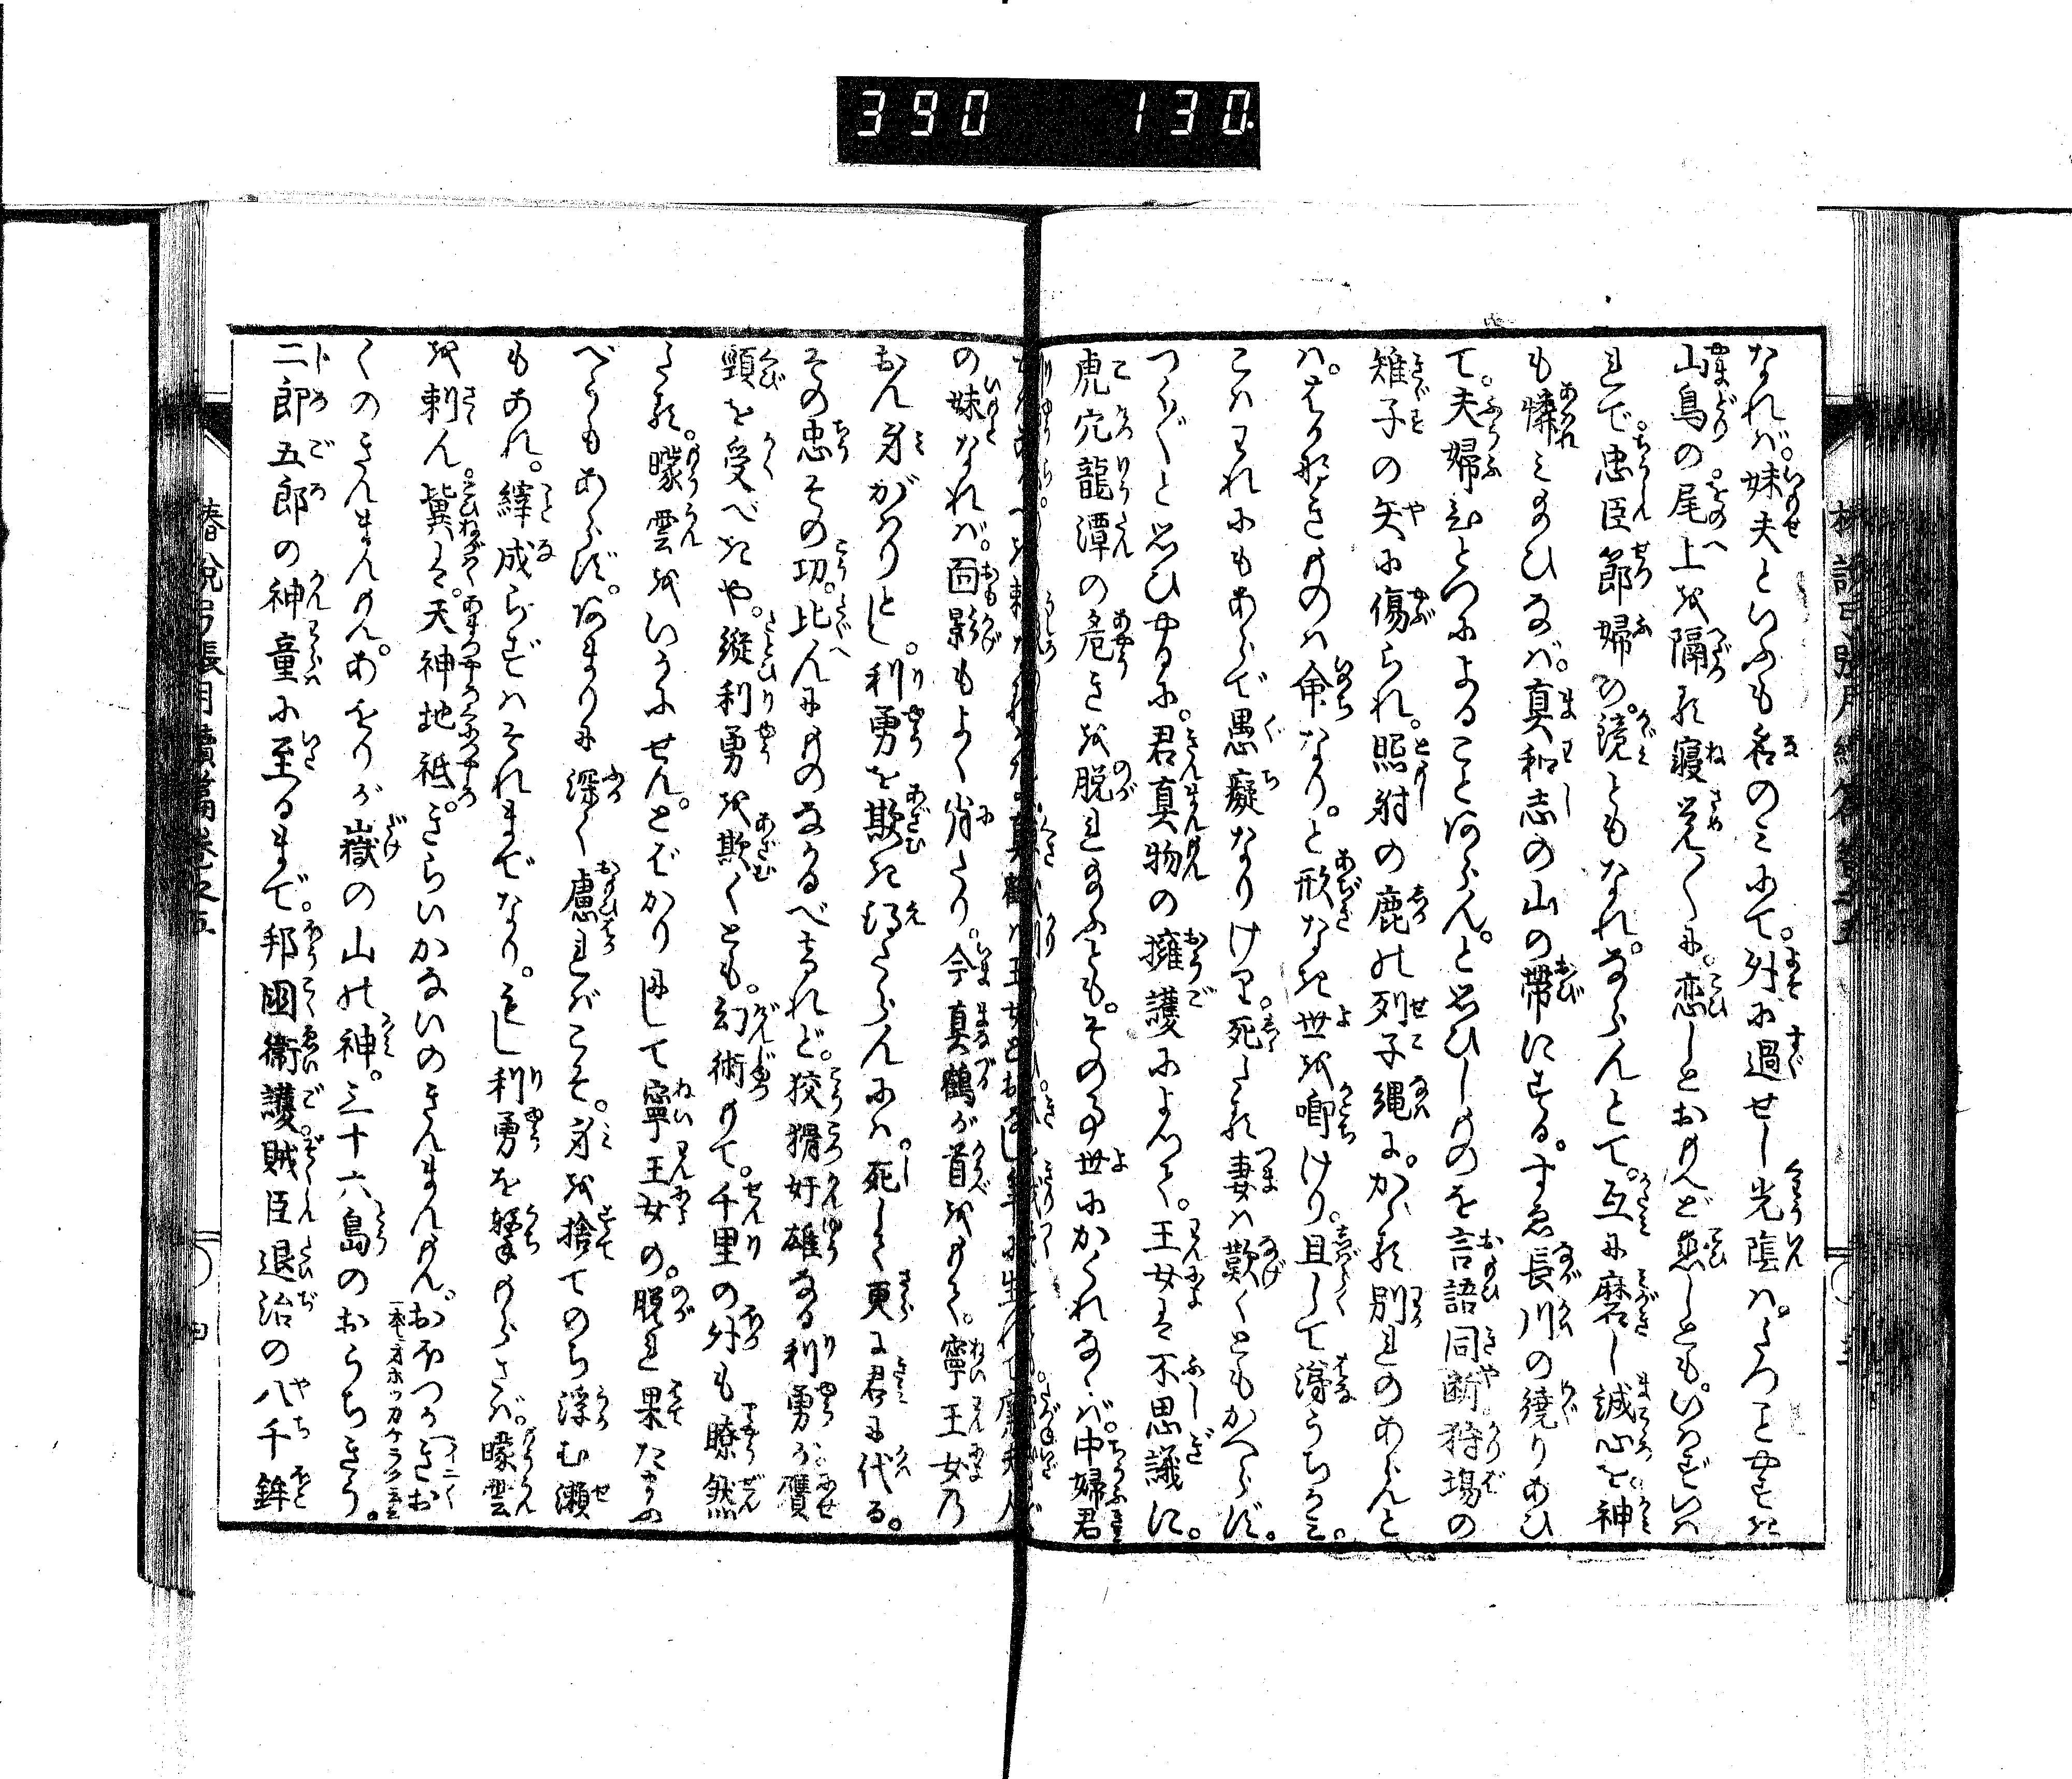 390 130
なれば。妹夫といふも名のみにて。外に過せし光陰は。たつことやすき
山鳥の尾上を隔る寝覚〳〵に。恋しとおもへど恋しとも。いはずいは
れで忠臣節婦の。鏡ともなれ。ならんとて。互に磨し誠心を。神
も憐みたまひなば。真和志の山の帯にせる。すゑ長川の繞りあひ
て。夫婦ひとつによることあらん。と思ひしものを言語同断狩場の
雉子の矢に傷られ。照射の鹿の列子縄に。かゝる別れのあらんと
は。はかなきものは命なり。と形なき世を喞けり。且して濤うちかみ。
こはわれにもあらで愚癡なりけり。死たる妻は歎くともかへらず。
つら〳〵と思ひやるに。君真物の擁護によつて。王女は不思議に。
虎穴龍潭の危きを脱れ給ふとも。その事世にかくれなくば。中婦君
の妹なれば。面影もよく肖たり。今真鶴が首をもて。寧王女の
おん身がはりとし。利勇を欺き得たらんには。死して更に君に代る。
その忠その功。比んにものなかるべけれど。狡猾奸雄なる利勇が。贋
頸を受べきや。縦利勇を欺くとも。幻術もて。千里の外も瞭然
たる。曚雲をいかにせん。とばかりにして寧王女の。脱れ果たまふ
べうもあらず。あまりに深く慮ればこそ。身を捨てのち浮む瀬
もあれ。繹成らずはそれまでなり。もし利勇を撃もらさば。曚雲
を刺ん。冀は。天神地祇。きらいかないのきんまんもん。おほつかきお
くのきんまんもん。あをりが嶽の山の神。三十六島のおうちきう。
二郎五郎の神童に至るまで。邦國衛護。賊臣退治の八千鉾
椿説弓張月續篇巻之五